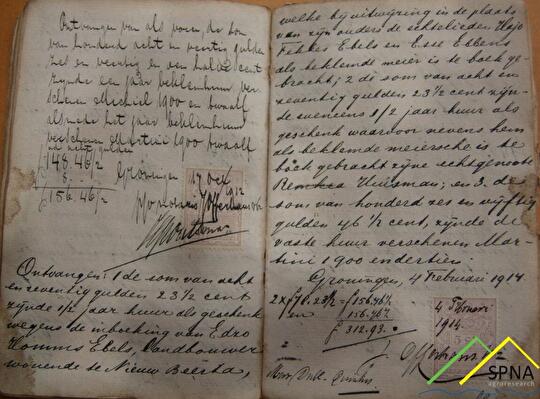 Ontvangen als voren de som
van honderd acht en veertig gulden
zes en veertig en een halve cent
zijnde een jaar beklemhuur ver-
schenen Michiel 1900 en twaalf
alsmede het jaar beklemhuur
verschenen Martini 1900 twaalf
acht gulden
ƒ 148.46½
8.-
ƒ 156.46½
Groningen
17 Oct
1912
Ontvangen: 1 de som van acht
en zeventig gulden 23½ cent
zijnde 1/2 jaar huur als geschenk
wegens de inboeking van Edzo
Hommes Ebels, landbouwer
wonende te Nieuw Beerta,
welke bij uitwijzing in de plaats
van zijn ouders de echtelieden Hajo
Fekkes Ebels en Esse Ebbens
als beklemde meier is te boek ge-
bracht; 2 de som van acht en
zeventig gulden 23½ cent zijn-
de eveneens 1/2 jaar huur als
geschenk waardoor nevens hem
als beklemde meiersche is te
boek gebracht zijne echtgenoote
Remkea Huisman; en 3. de
som van honderd zes en vijftig
gulden 46½ cent, zijnde de
vaste huur verschenen Mar-
tini 1900 en dertien.
Groningen, 4 Februari 1914.
2 x ƒ 78.23½ = ƒ 156.46½
en 156.46½
ƒ 312.93.
4 Febuari
1914.
SPNA
agroresearch